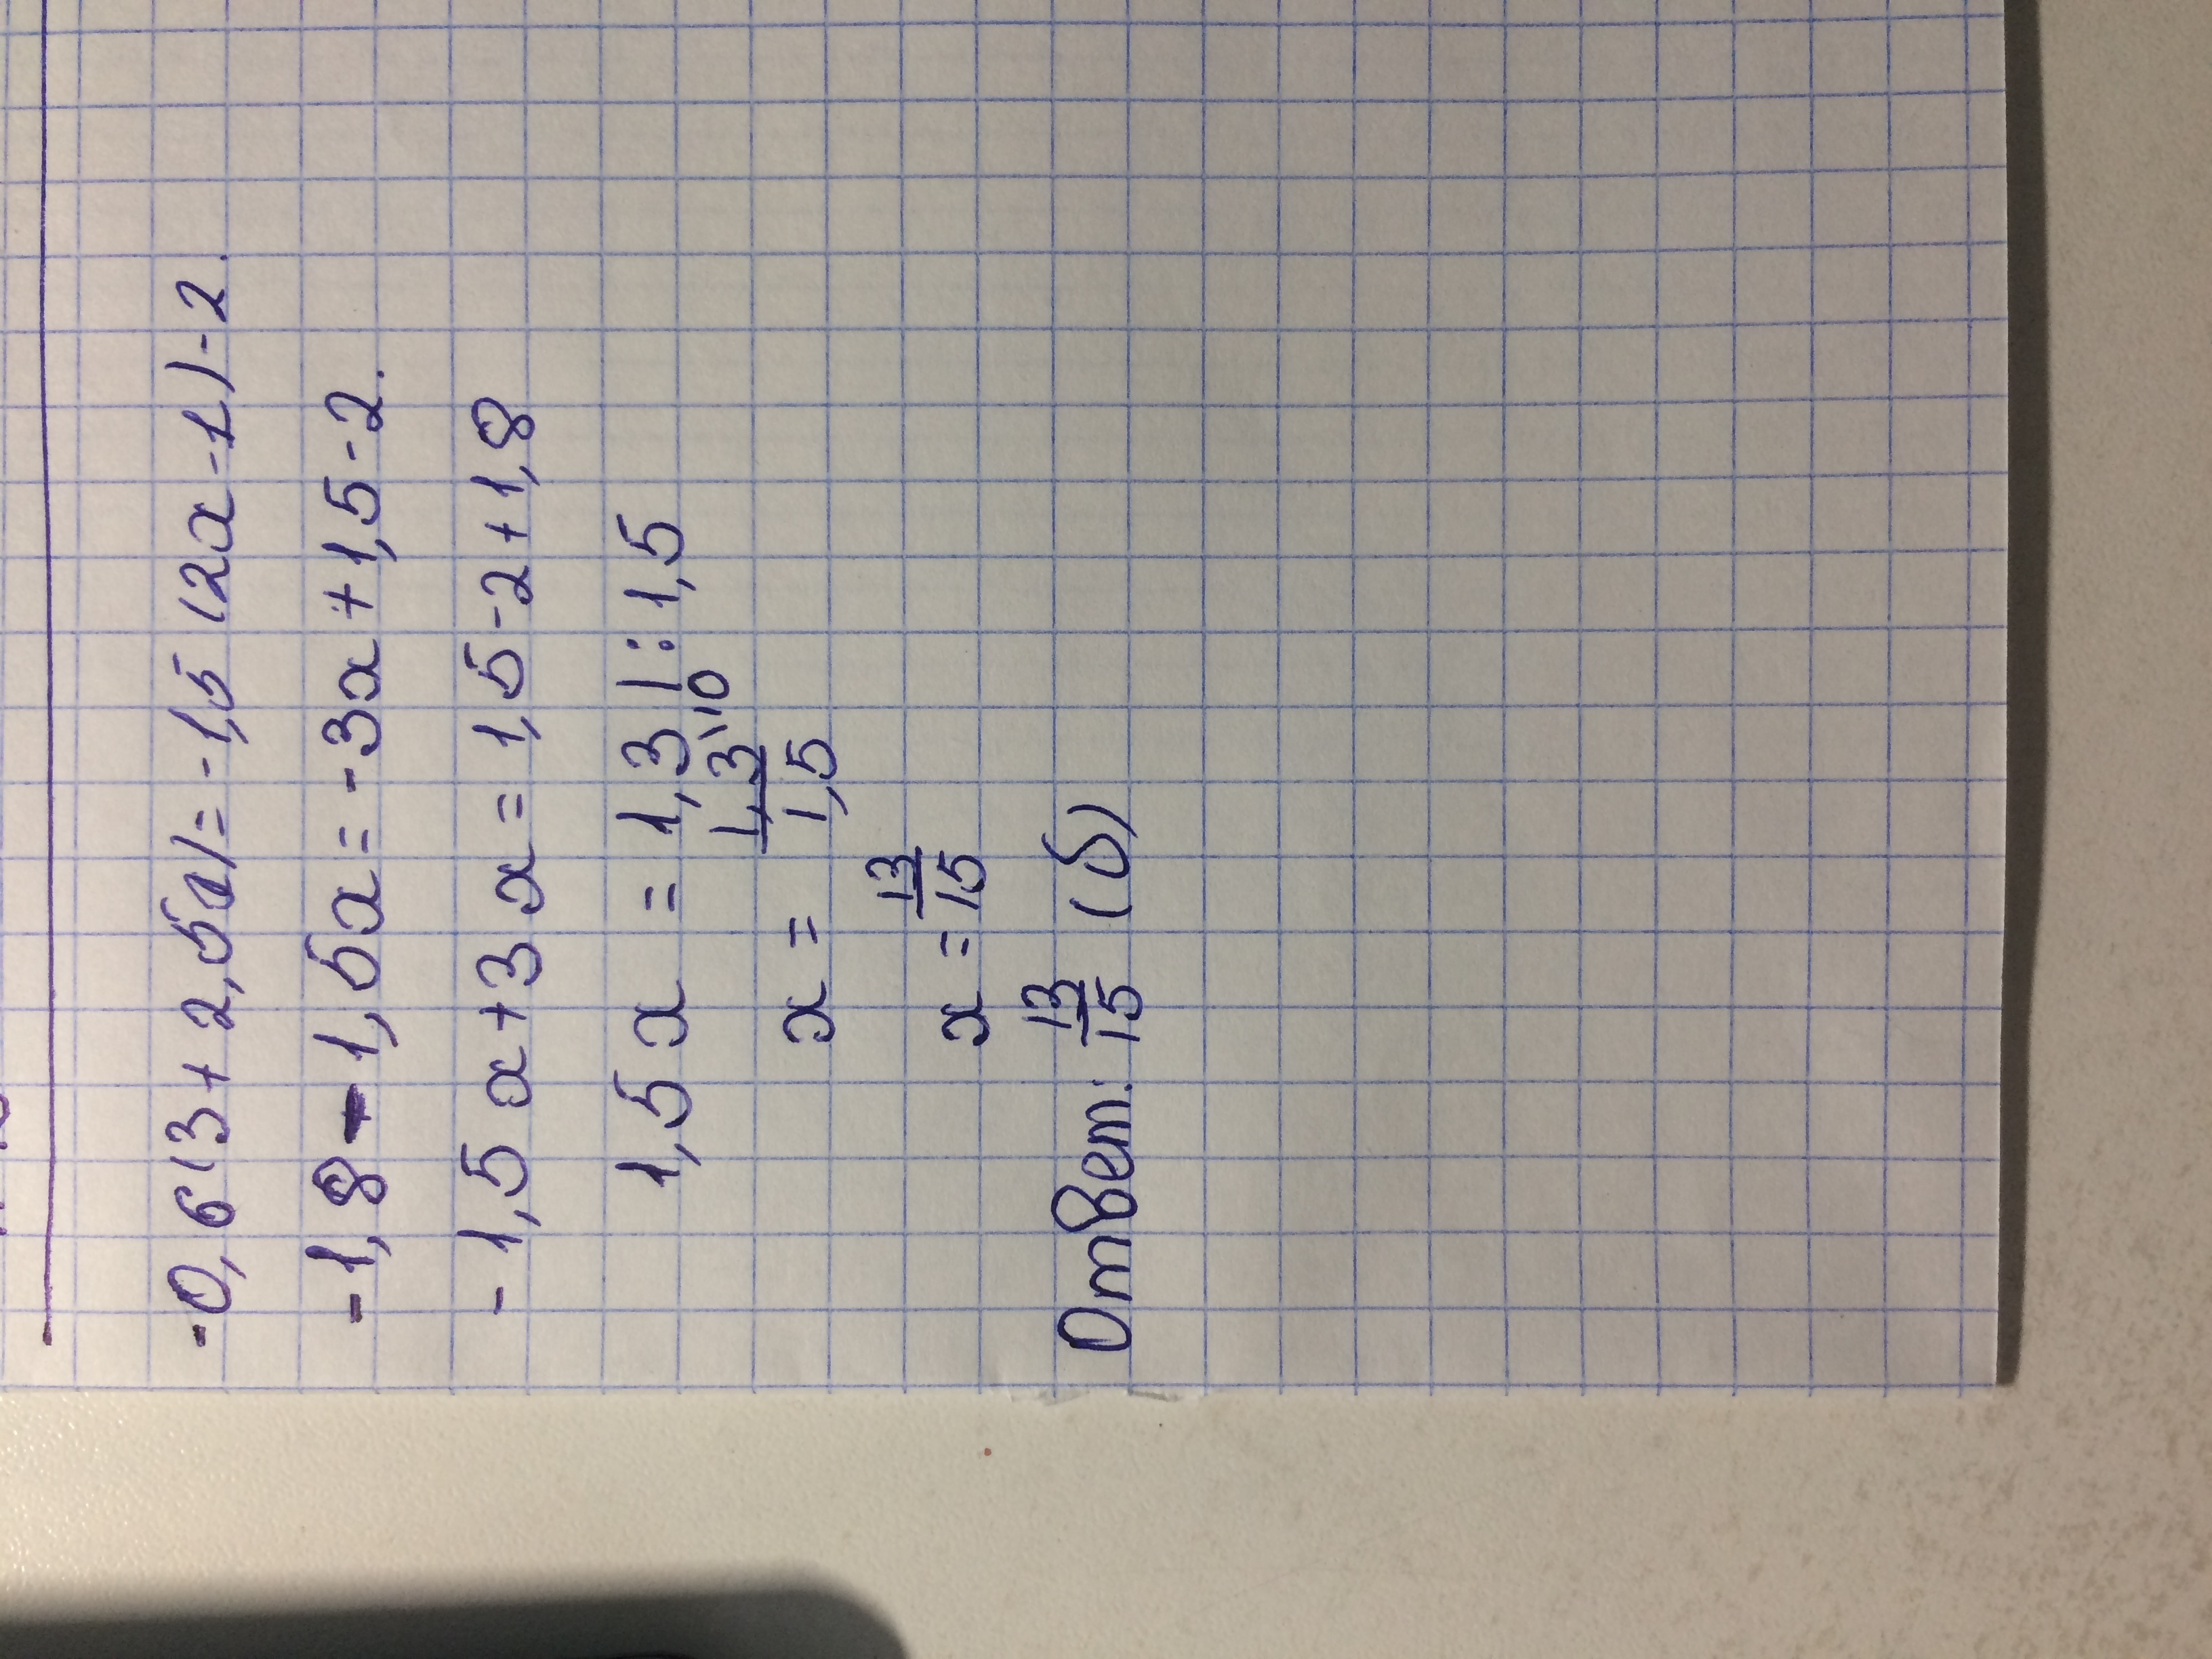 -0,6(3+2,5a)=-1,5(2a-1)-2.
-1,8-1,5a=-3a+1,5-2.
-1,5a+3a=1,5-2+1,8
1,5a = 1,3 |:1,5
a = 1,3\10 / 1,5
a = 13/15
Ответ: 13/15 (б)